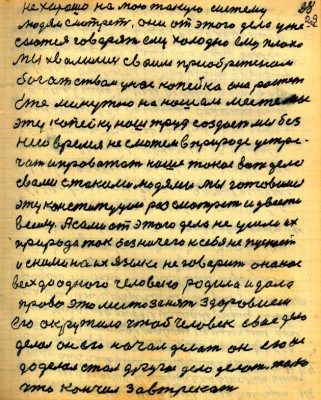 28
29
не хорошо на мою такую систему
людям смотреть, они от этого дела ужа
саются говорят ему холодно ему плохо
мы хвалимся своим приобретеним
богатством у нас копейка она растет
еже минутно на нашем месте мы
эту копейку наш труд создает мы без
него время не сможем в природе устре
чать и проважать наше такое вот дело
с вами с такими людями мы готовили
эту конституцию рассмотреть и ввести
в силу. А сами от этого дела не ушли их
природа так без ничего к себе не пускает
и сними на их языке не говорит она нас
всех до одного человека родила и дала
право это место занять здоровием
его окружила чтоб человек свое дело
делал он его начал делать он ею не
доделал стал другое дело делать только
что кончил завтрекать